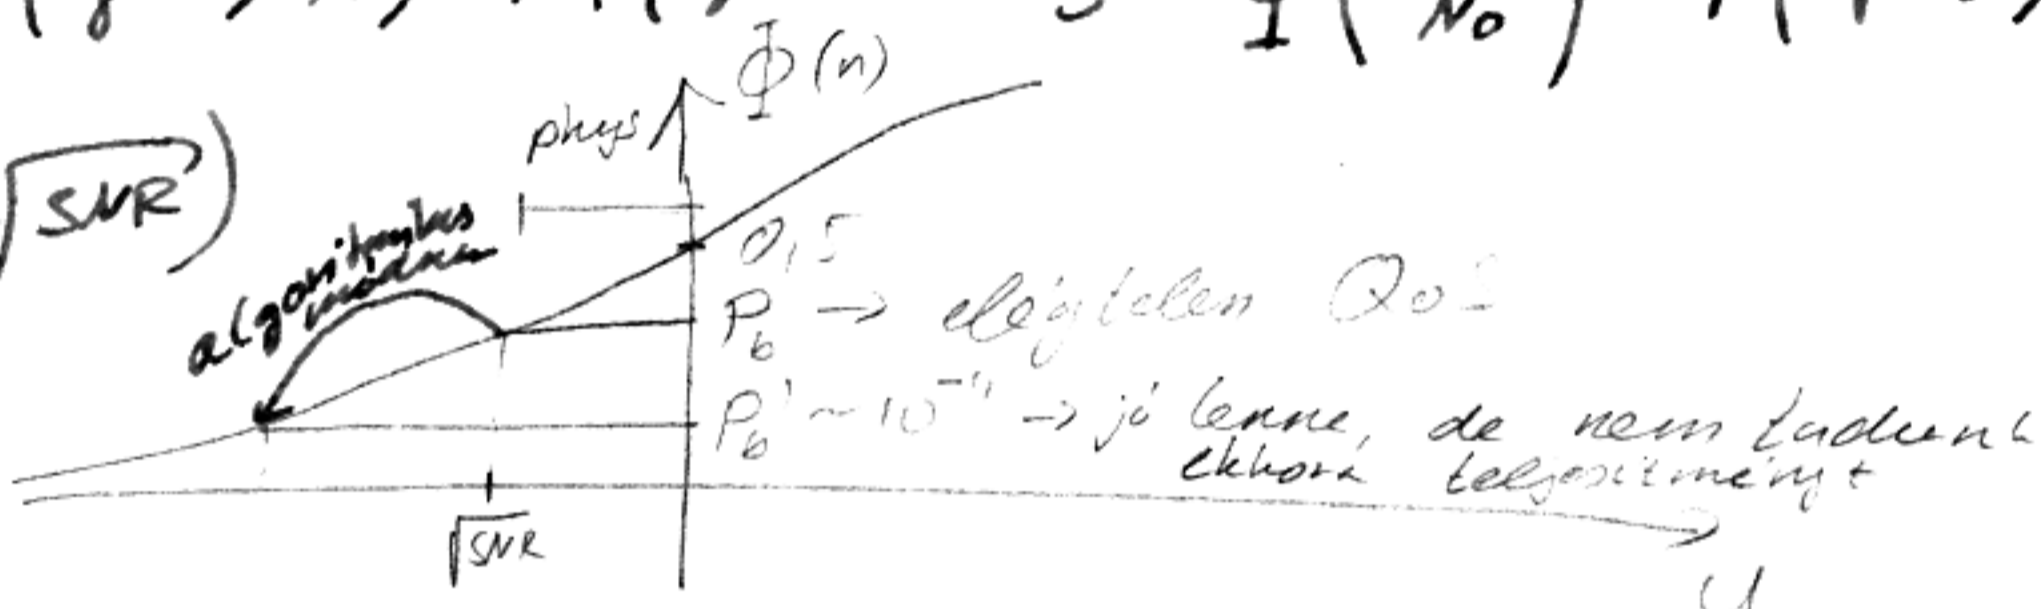 Φ(n)
phys
√SNR)
algoritmikus
módon
0,5
P_b → elégtelen QoS
P_b' ~ 10^-4 → jó lenne, de nem tudunk
ekkora teljesítményt
√SNR